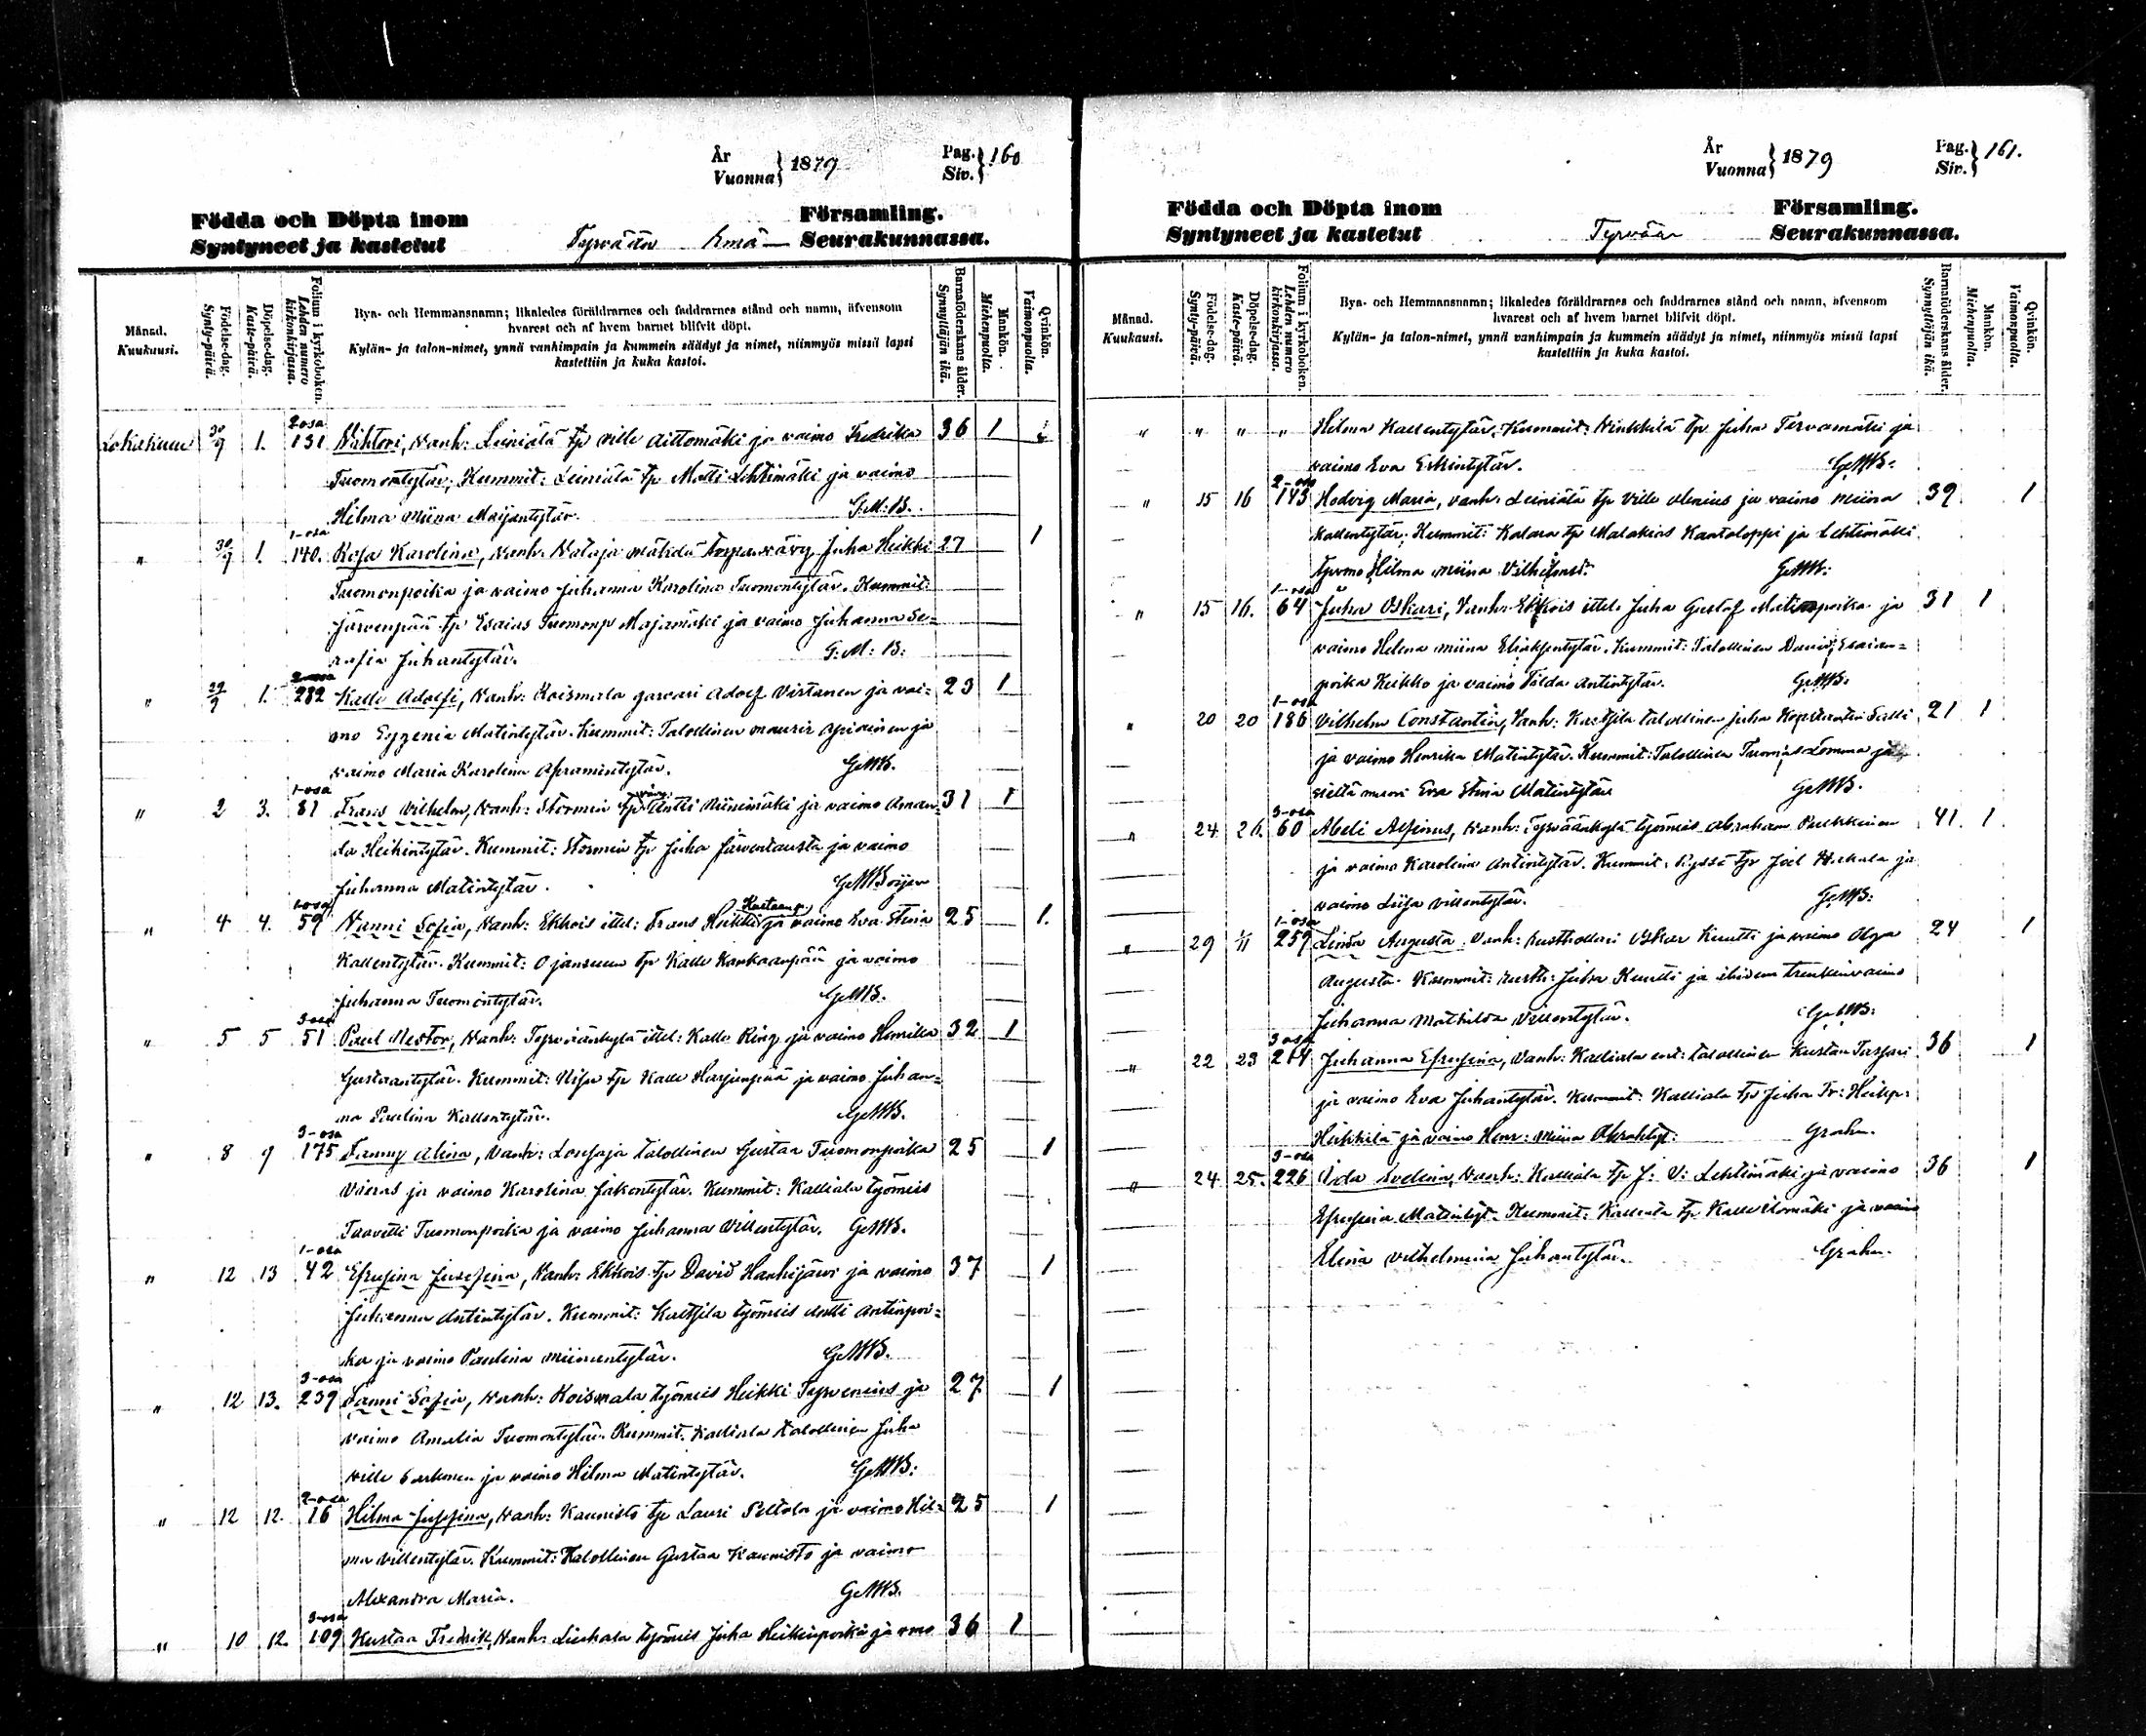 År
Vuonna } 1879
Pag.
Siv. } 160
Födda och Döpta inom Församling.
Syntyneet ja kastetut Tyrvään Emä- Seurakunnassa.
Månad.
Kuukausi.
Födelse-dag.
Synty-päivä.
Döpelse-dag.
Kaste-päivä.
Folium i kyrkoboken.
Lehden numero kirkonkirjassa.
Bya- och Hemmansnamn; likaledes föräldrarnes och faddrarnes stånd och namn, äfvensom
hvarest och af hvem barnet blifvit döpt.
Kylän- ja talon-nimet, ynnä vanhimpain ja kummein säädyt ja nimet, niinmyös missä lapsi
kastettiin ja kuka kastoi.
Barnaföderskans ålder.
Synnyttäjän ikä.
Mankön.
Miehenpuolta.
Qvinkön.
Vaimonpuolta.
2 osa
Lokakuu 30/9 1. 131 Vihtori, Vanh: Leiniälä tp Ville Aittomäki ja vaimo Fredrika 36 1
Tuomontytär; Kummit: Leiniälä tp Matti Lehtimäki ja vaimo
Hilma Miina Maijantytär. G.M.B.
1-osa
" 30/9 1. 140. Rosa Karolina, Vanh: Nataja mäkitu torpanvävy Juha Heikki 27 1
Tuomonpoika ja vaimo Johanna Karolina Tuomontytär. Kummit:
Järvenpää tp Esaias Tuomonp Majamäki ja vaimo Johanna Se=
rafia Juhantytär. G: M: B:
2-osa
" 29/9 1. 282 Kalle Adolfi, Vanh: Roismala garvari Adolf Virtanen ja vai= 23 1
mo Eygenia Matintytär. Kummit: Talollinen ja
vaimo Maria Karolina Apramintytär. GMB.
1-osa
" 2 3. 81 Frans Vilhelm, Vanh: Stormin tp Antti Niinimäki ja vaimo Aman= 31 1
da Heikintytär. Kummit: Stormin tp Juha Järventausta ja vaimo
Johanna Matintytär. GMB
1-osa
" 4 4. 59 Nanni Sofia, Vanh: Ekkois ittel: Frans Heikki ja vaimo Eva Stina 25 1.
Kallentytär. Kummit: Ojansuun tp Kalle Kankaanpää ja vaimo
Johanna Tuomontytär. GMB.
3-osa
" 5 5 51 Paul Nestor, Vanh: Tyrväänkylä ittel: Kalle Ring ja vaimo Henrika 32 1
Gustaantytär. Kummit: tp Kalle Harjunpää ja vaimo Johan=
na Paulina Kallentytär. GMB.
3-osa
" 8 9 175 Fanny Alina, Vanh: Lousaja talollinen Gustaa Tuomonpoika 25 1
ja vaimo Karolina Jakontytär. Kummit: Kalliala työmies
Taavetti Tuomonpoika ja vaimo Johanna Villentytär. GMB.
1-osa
" 12 13 42 Efrusina Josefina, Vanh: Ekkois tp David Hanhijärvi ja vaimo 37 1
Johanna Antintytär. Kummit: Kaltsila työmies Antti Antinpoi=
ka ja vaimo Paulina GMB.
3-osa
" 12 13. 239 Fanni Sofia, Vanh: Roismala työmies Heikki Tyrvenius ja 27 1
vaimo Amalia Tuomontytär. Kummit: Kalliala talollinen Juha
Ville ja vaimo Hilma Matintytär. GMB:
2-osa
" 12 12. 16 Hilma Josefina, Vanh: Kaunisto tp Lauri Peltola ja vaimo Hil= 25 1
ma Villentytär. Kummit: Talollinen Gustaa Kaunisto ja vaimo
Alexandra Maria. GMB.
3-osa
" 10 12. 109 Kustaa Fredrik, Vanh: Liuhala työmies Juha Heikinpoika ja vmo 36 1
År
Vuonna } 1879
Pag.
Siv. } 161.
Födda och Döpta inom Församling.
Syntyneet ja kastetut Tyrvään Seurakunnassa.
Månad.
Kuukausi.
Födelse-dag.
Synty-päivä.
Döpelse-dag.
Kaste-päivä.
Folium i kyrkoboken.
Lehden numero kirkonkirjassa.
Bya- och Hemmansnamn; likaledes föräldrarnes och faddrarnes stånd och namn, äfvensom
hvarest och af hvem barnet blifvit döpt.
Kylän- ja talon-nimet, ynnä vanhimpain ja kummein säädyt ja nimet, niinmyös missä lapsi
kastettiin ja kuka kastoi.
Barnaföderskans ålder.
Synnyttäjän ikä.
Mankön.
Miehenpuolta.
Qvinkön.
Vaimonpuolta.
" " " " Hilma Kallentytär. Kummit: Kinkkilä tp Juha Tervamäki ja
vaimo Eva Erkintytär. GMB:
2-osa
" 15 16 143 Hedvig Maria, Vanh: Leiniälä tp Ville Alenius ja vaimo Miina 39 1
Kallentytär; Kummit: Kalara tp Malakias Kantaloppi ja Lehtimäki
Hilma Miina GMB:
1-osa
" 15 16. 64 Juha Oskari, Vanh: Ekkois ittel: Juha Gustaf Matinpoika ja 31 1
vaimo Helena Miina Kummit: Talollinen David Esaian=
poika Keikko ja vaimo Tilda Antintytär. GMB.
1-osa
" 20 20 186 Vilhelm Constantin, Vanh: Kaltsila talollinen Juha Konstantin Salli 21 1
ja vaimo Henrika Matintytär. Kummit: Talollinen Tuomas Lomma ja
sieltä muori Eva Stina Matintytär GMB.
3-osa
" 24 26. 60 Abeli Alfinus, Vanh: Tyrväänkylä työmies Abraham Pulkkinen 41. 1.
ja vaimo Karolina Antintytär. Kummit: tp Joel Hakala ja
vaimo Liisa Villentytär. GMB:
1-osa
" 29 1/11 259 Linda Augusta. Vanh: rusthollari Oskar Knutti ja vaimo Olga 24 1
Augusta. Kummit: rusth: Juha Knutti ja ibidem trenkinvaimo
Johanna Mathilda Villentytär. GMB:
3 osa
" 22 23 Johanna Efrusina, Vanh: Kalliala ent: talollinen Kustaa 36 1
ja vaimo Eva Juhantytär. Kummit: Kalliala tp Juha Fr: Heikp:
Heikkilä ja vaimo Henr: Miina Grahn.
3-osa
" 24 25. 226 Ida Evelina, Vanh: Kalliala tp J: V: Lehtimäki ja vaimo 36 1
Efrusina Matintyt. Kummit: Kalliala tp Kalle ja vaimo
Elina Vilhelmina Juhantytär. Grahn.